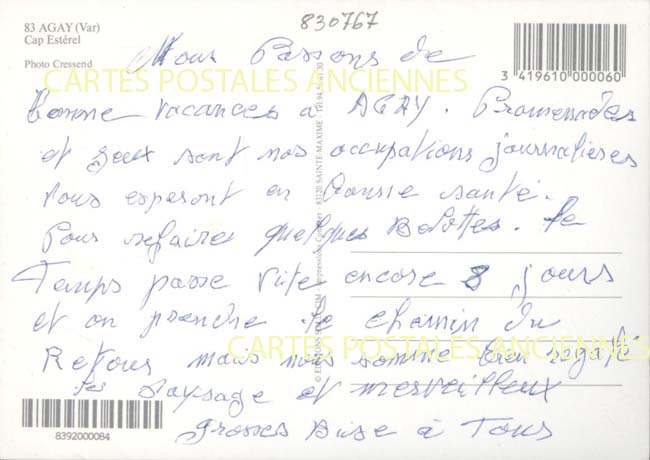 83 AGAY (Var)
Cap Estérel
Photo Cressend
830767
3 419610 000060
CARTES POSTALES ANCIENNES
Nous Passons de
bonne vacances à AGAY. Promenades
et jeux sont nos occupations journalieres
Vous esperont en bonne santé.
Pour refaire quelques Belottes. Le
Temps passe vite encore 8 jours
et on prendra le chemin du
Retour mais nous somme bien régalé
les paysage et merveilleux
Grosses Bise à Tous
CARTES POSTALES ANCIENNES
83120 SAINTE-MAXIME
8392000084